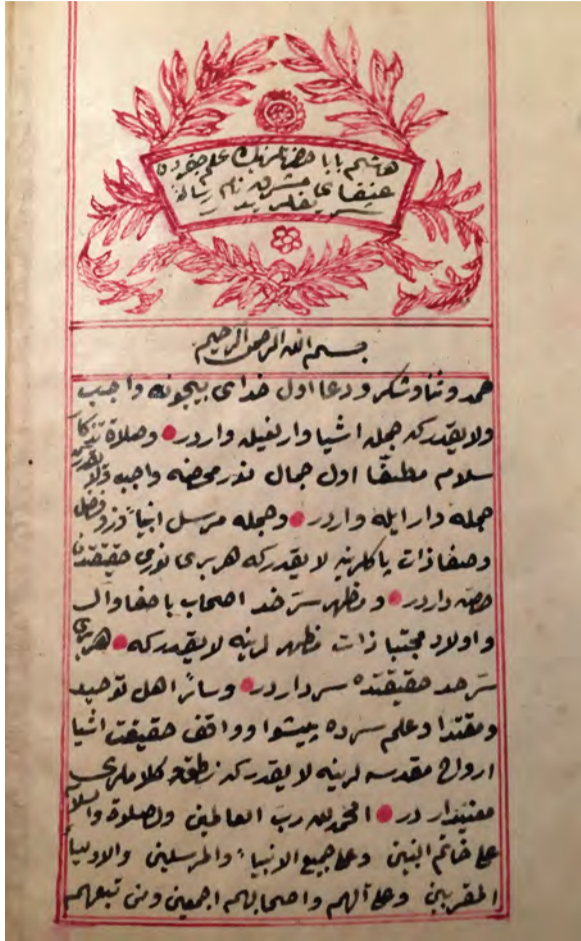 هاشم بابا حضرتلرينك علم جفردن
عنقاى مشرق نام رسالۀ
شريفلريدر
بسم الله الرحمن الرحيم
حمد و ثنا و شكر و دعا اول خداى بيچونه واجب
ولايقدركه جمله اشيا وارلغيله واردر • وصلاة
سلام مطلقا اول جمال نور محضه واجب ولايقدر
جمله دار ايله واردر • وجمله مرسل انبياء
وصفا ذات پاكلرينه لايقدركه هر برى نورى حقيقتدن
حصه داردر • ومظهر سر خدا اصحاب باصفا وآل
و اولاد مجتبا ذات مظهرلرينه لايقدركه • هر برى
سر حد حقيقتده سرداردر • وسائر اهل توحيد
ومقتدا وعلم سرده پيشوا وواقف حقيقت اشيا
ارواح مقدسه لرينه لايقدركه نطق و كلاملرى
معنيداردر • الحمد لله رب العالمين والصلوة والسلام
على خاتم النبين وعلى جميع الانبياء والمرسلين والاوليا
المقربين وعلى آلهم واصحابهم اجمعين ومن تبعهم